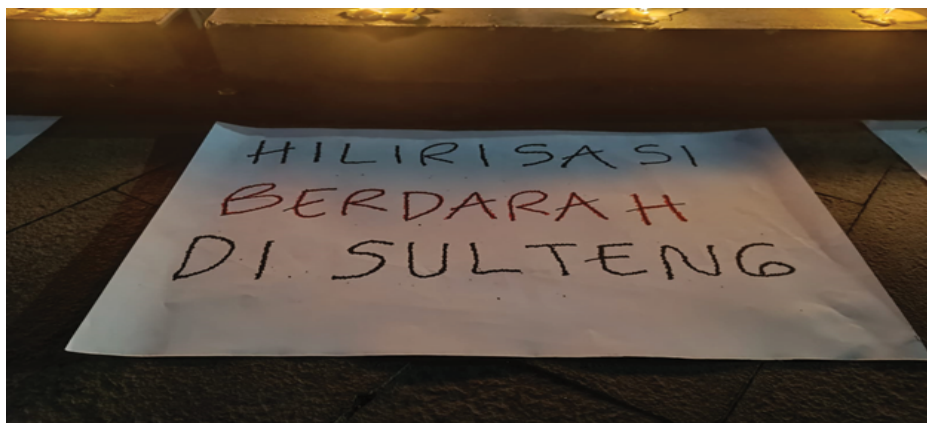 HILIRISASI
BERDARAH
DI SULTENG